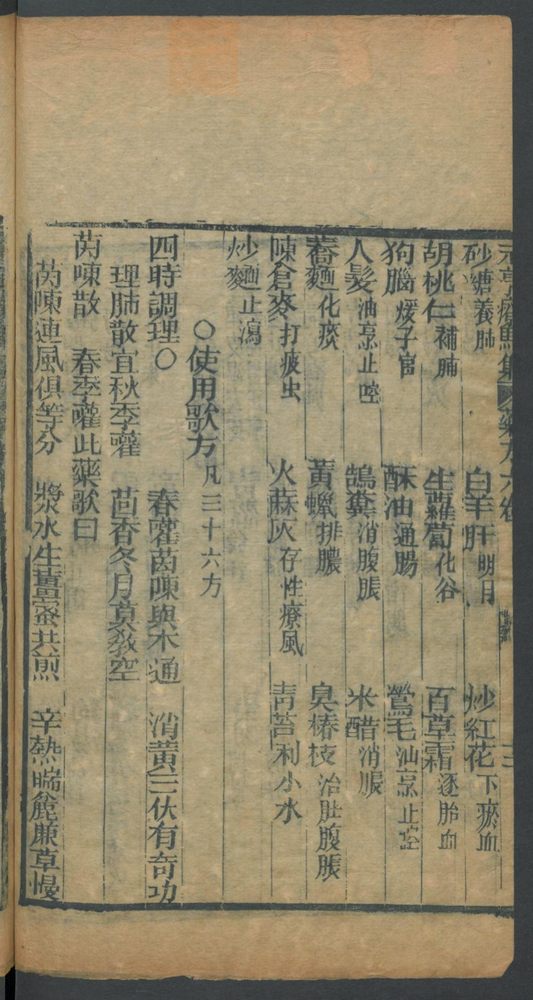 元亨療馬集 藥方六卷 三
砂糖養肺 白羊肝明目 炒紅花下瘀血
胡桃仁補腩 生蘿蔔化谷 百草霜逐胎血
狗腦煖子宮 酥油通腸 鶯毛油烹止啌
人髮油烹止啌 鵓糞消腹脹 米醋消脹
蕎麵化痰 黃蠟排膿 臭椿枝治肚腹脹
陳倉麥打疲虫 火蔴灰存性療風 靑苔利小水
炒麵止瀉
○使用歌方凡三十六方
四時調理○ 春灌茵陳與木通 消黃三伏有奇功
理肺散宜秋季灌 茴香冬月莫敎空
茵陳散 春季灌此藥歌曰
茵陳連風俱等分 漿水生薑蜜共煎 辛熱喘麄亷草慢